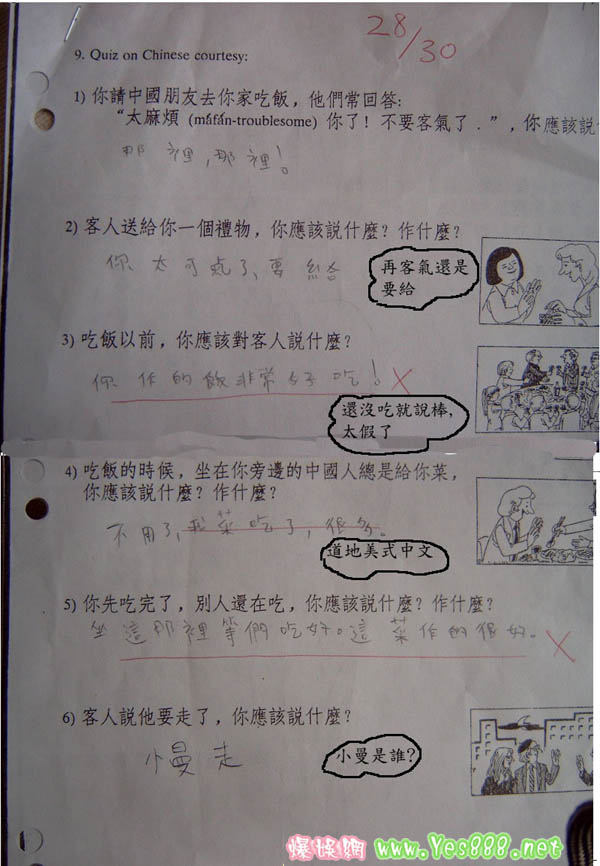 28/30
9. Quiz on Chinese courtesy:
1) 你請中國朋友去你家吃飯，他們常回答:
“太麻煩 (máfán-troublesome) 你了！不要客氣了．”，你應該説
那裡，那裡！
2) 客人送給你一個禮物，你應該説什麼？作什麼？
你太可氣了、要給
再客氣還是
要給
3) 吃飯以前，你應該對客人説什麼？
你作的飯非常好吃！
還沒吃就說棒，
太假了
4) 吃飯的時候，坐在你旁邊的中國人總是給你菜，
你應該説什麼？作什麼？
不用了，我菜吃了，很多。
道地美式中文
5) 你先吃完了，別人還在吃，你應該説什麼？作什麼？
坐這那裡等們吃好。這菜作的很好。
6) 客人説他要走了，你應該説什麼？
小曼走
小曼是誰？
爆娛網 www.Yes888.net